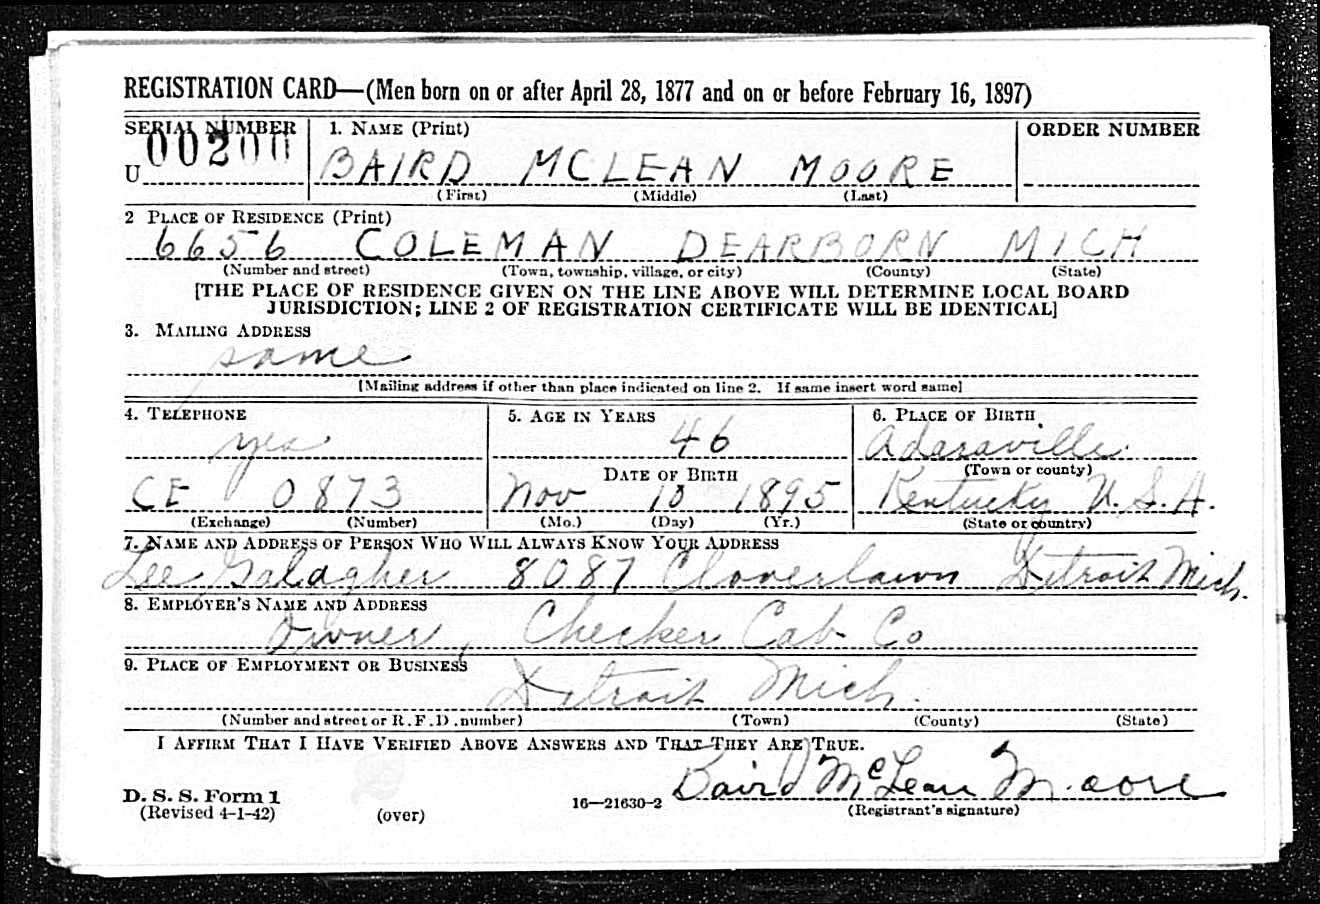 REGISTRATION CARD—(Men born on or after April 28, 1877 and on or before February 16, 1897)
SERIAL NUMBER 1. NAME (Print) ORDER NUMBER
U 00200 BAIRD MCLEAN MOORE
(First) (Middle) (Last)
2 PLACE OF RESIDENCE (Print)
6656 COLEMAN DEARBORN MICH
(Number and street) (Town, township, village, or city) (County) (State)
[THE PLACE OF RESIDENCE GIVEN ON THE LINE ABOVE WILL DETERMINE LOCAL BOARD
JURISDICTION; LINE 2 OF REGISTRATION CERTIFICATE WILL BE IDENTICAL]
3. MAILING ADDRESS
same
[Mailing address if other than place indicated on line 2. If same insert word same]
4. TELEPHONE 5. AGE IN YEARS 6. PLACE OF BIRTH
yes 46 Adasaville
DATE OF BIRTH (Town or county)
CE 0873 Nov 10 1895 Kentucky U.S.A.
(Exchange) (Number) (Mo.) (Day) (Yr.) (State or country)
7. NAME AND ADDRESS OF PERSON WHO WILL ALWAYS KNOW YOUR ADDRESS
Lee Galagher 8087 Cloverlawn Detroit Mich.
8. EMPLOYER'S NAME AND ADDRESS
Owner, Checker Cab Co
9. PLACE OF EMPLOYMENT OR BUSINESS
Detroit Mich.
(Number and street or R.F.D. number) (Town) (County) (State)
I AFFIRM THAT I HAVE VERIFIED ABOVE ANSWERS AND THAT THEY ARE TRUE.
Baird McLean Moore
D. S. S. Form 1
(Revised 4-1-42) (over) 16—21630-2 (Registrant's signature)